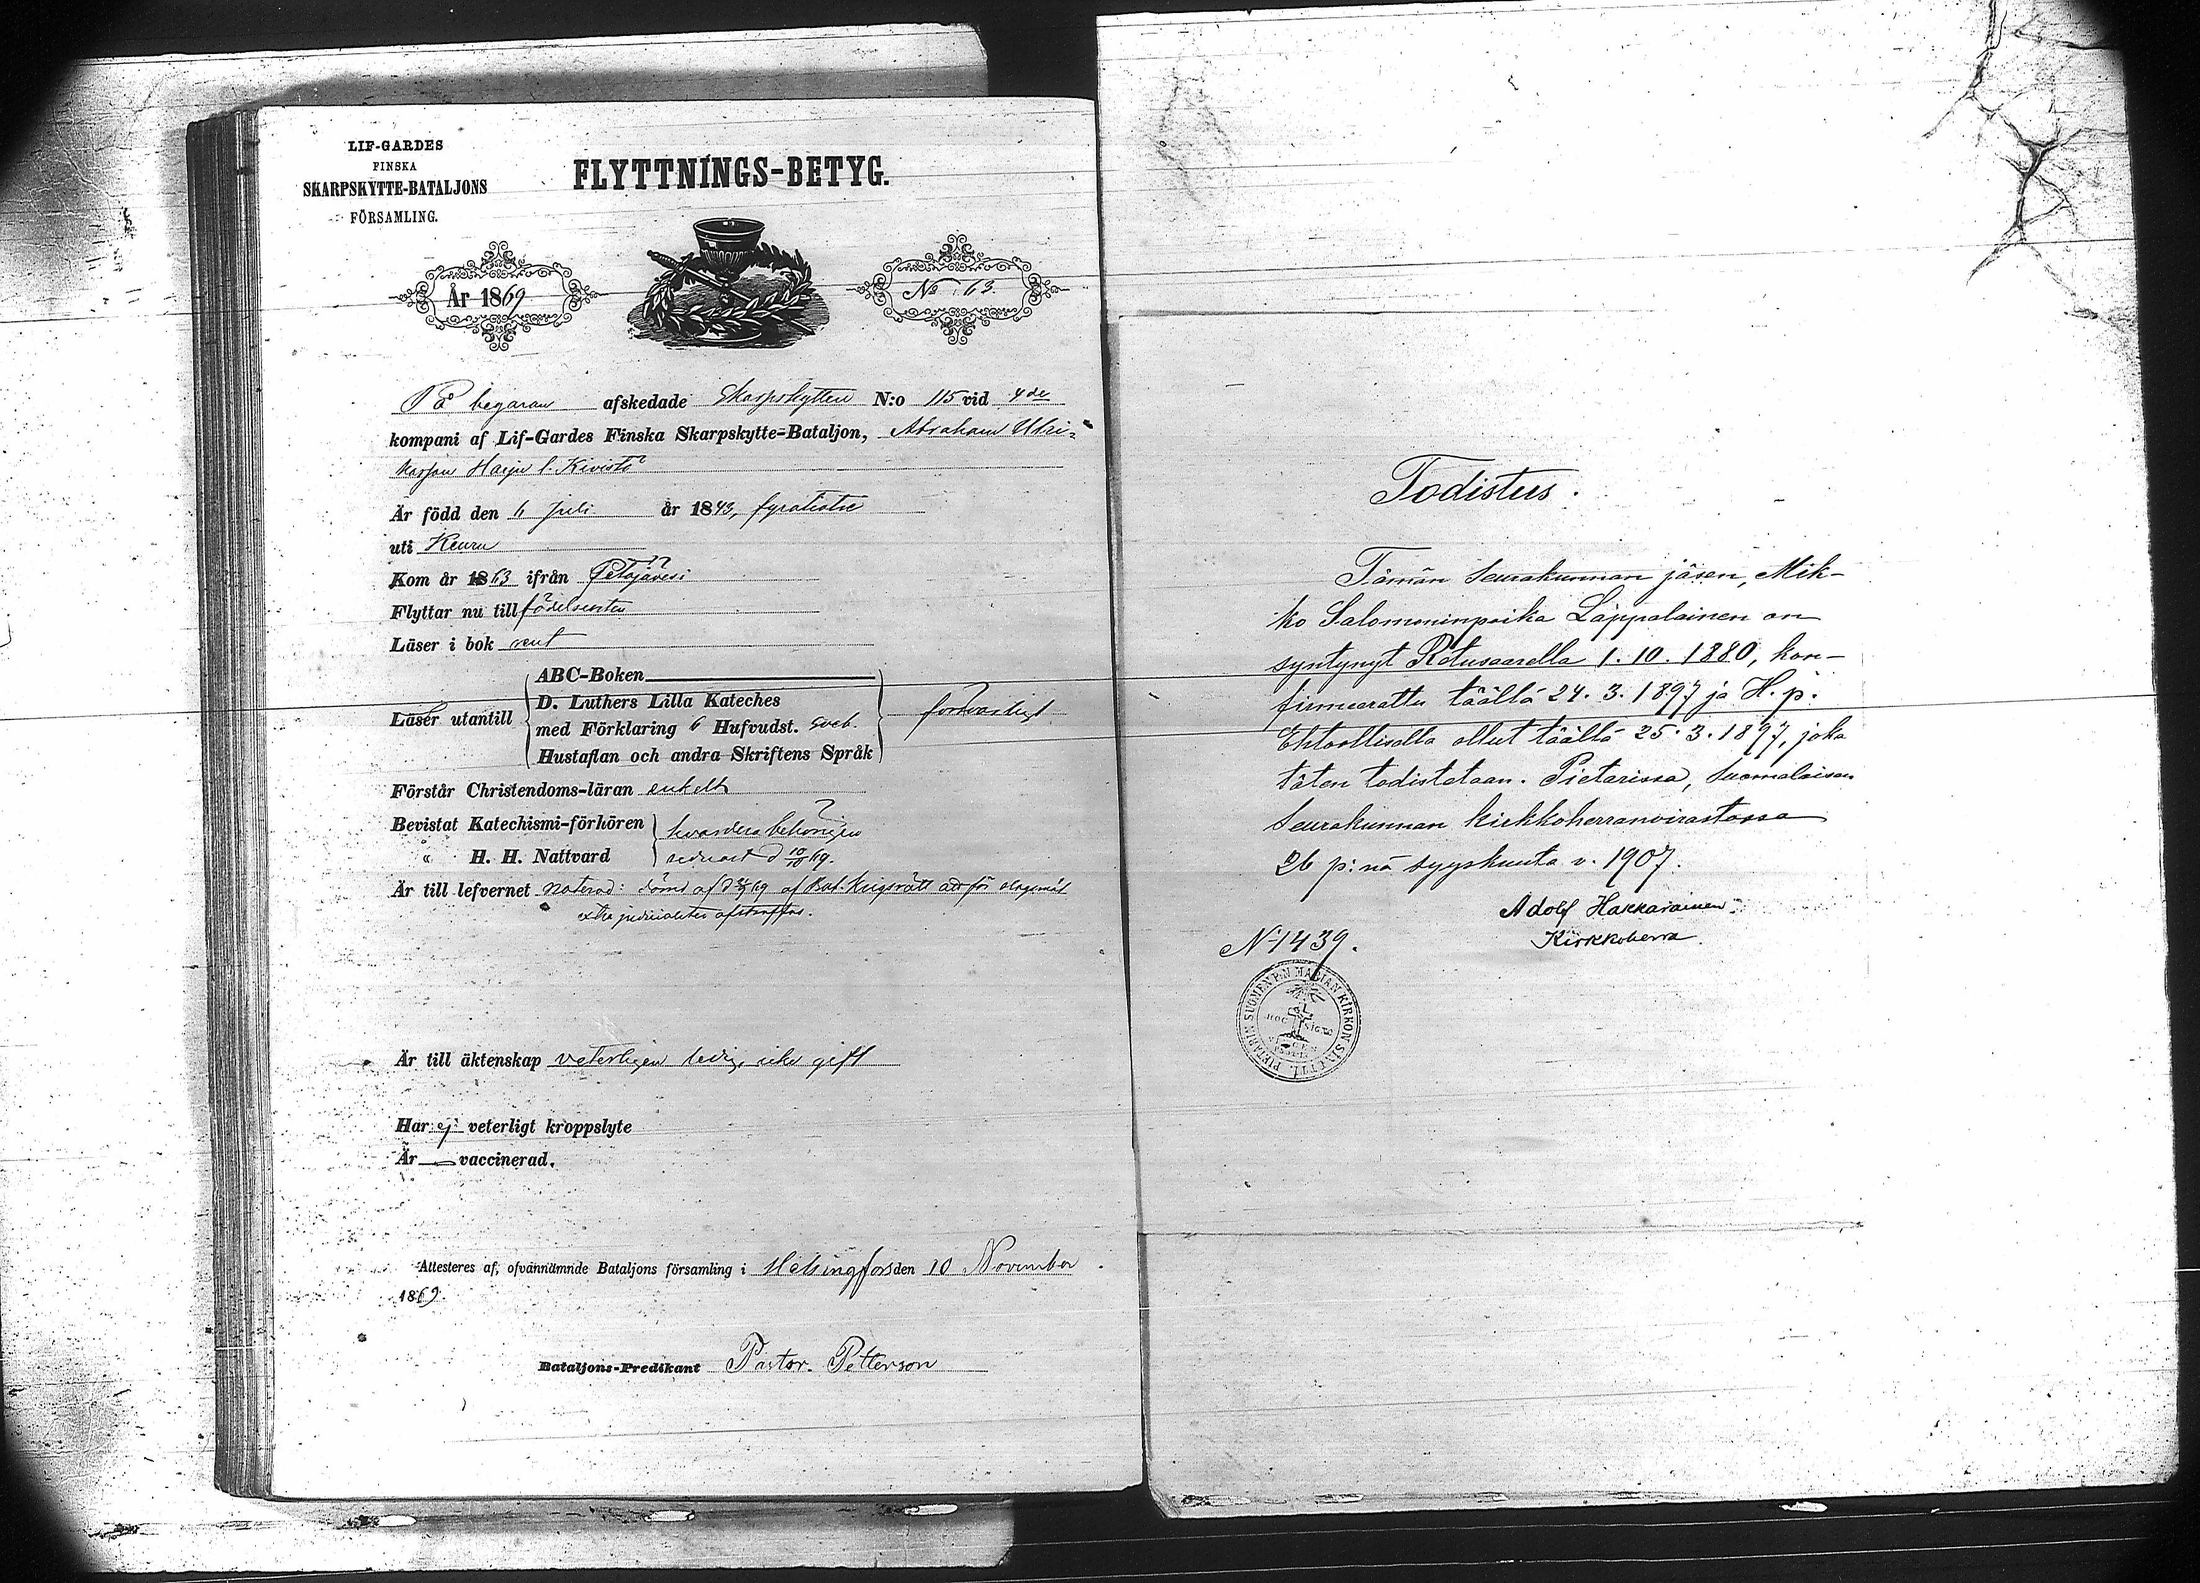 LIF-GARDES
FINSKA
SKARPSKYTTE-BATALJONS
FÖRSAMLING.
FLYTTNINGS-BETYG.
År 1869
No 63.
På begäran afskedade Skarpskytten N:o 115 vid 4de
kompani af Lif-Gardes Finska Skarpskytte-Bataljon, Abraham Ulri-
kasson Harju l. Kivistö
Är född den 6 Juli år 1843, fyratiotre
uti Keuru
Kom år 1863 ifrån Petäjävesi
Flyttar nu till födelseorten
Läser i bok rent
ABC-Boken
D. Luthers Lilla Kateches
Läser utantill
med Förklaring 6 Hufvudst. sveb. försvarligt
Hustaflan och andra Skriftens Språk
Förstår Christendoms-läran enkelt
Bevistat Katechismi-förhören hvardera behörigen
" H. H. Nattvard senast d 10/10 69.
Är till lefvernet noterad: dömd af Bat. Krigsrätt att för olagmål
extra judicialiter afstraffas.
Är till äktenskap veterligen ledig, icke gift
Har ej veterligt kroppslyte
Är vaccinerad.
Attesteres af, ofvannämnde Bataljons församling i Helsingfors den 10 November
1869.
Bataljons-Predikant Pastor Petterson
Todistus.
Tämän Seurakunnan jäsen, Mik-
ko Salomoninpoika Läppalainen on
syntynyt Retusaarella 1. 10. 1880, kon-
firmeerattu täällä 24. 3. 1897 ja H. p.
Ehtoollisella ollut täällä 25. 3. 1897, joka
täten todistetaan. Pietarissa, Suomalaisen
Seurakunnan kirkkoherranvirastossa
26 p:nä syyskuuta v. 1907.
Adolf Hakkarainen
Kirkkoherra.
N 1439.
PIETARIN SUOMENEN MARIAN KIRKON SINETTI.
HOC SIGNO